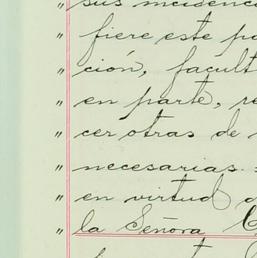 " sus incidenc
" fiere este po
" ción, facult
" en parte, re
" cer otras de
" necesarias.
" en virtud
" la Señora